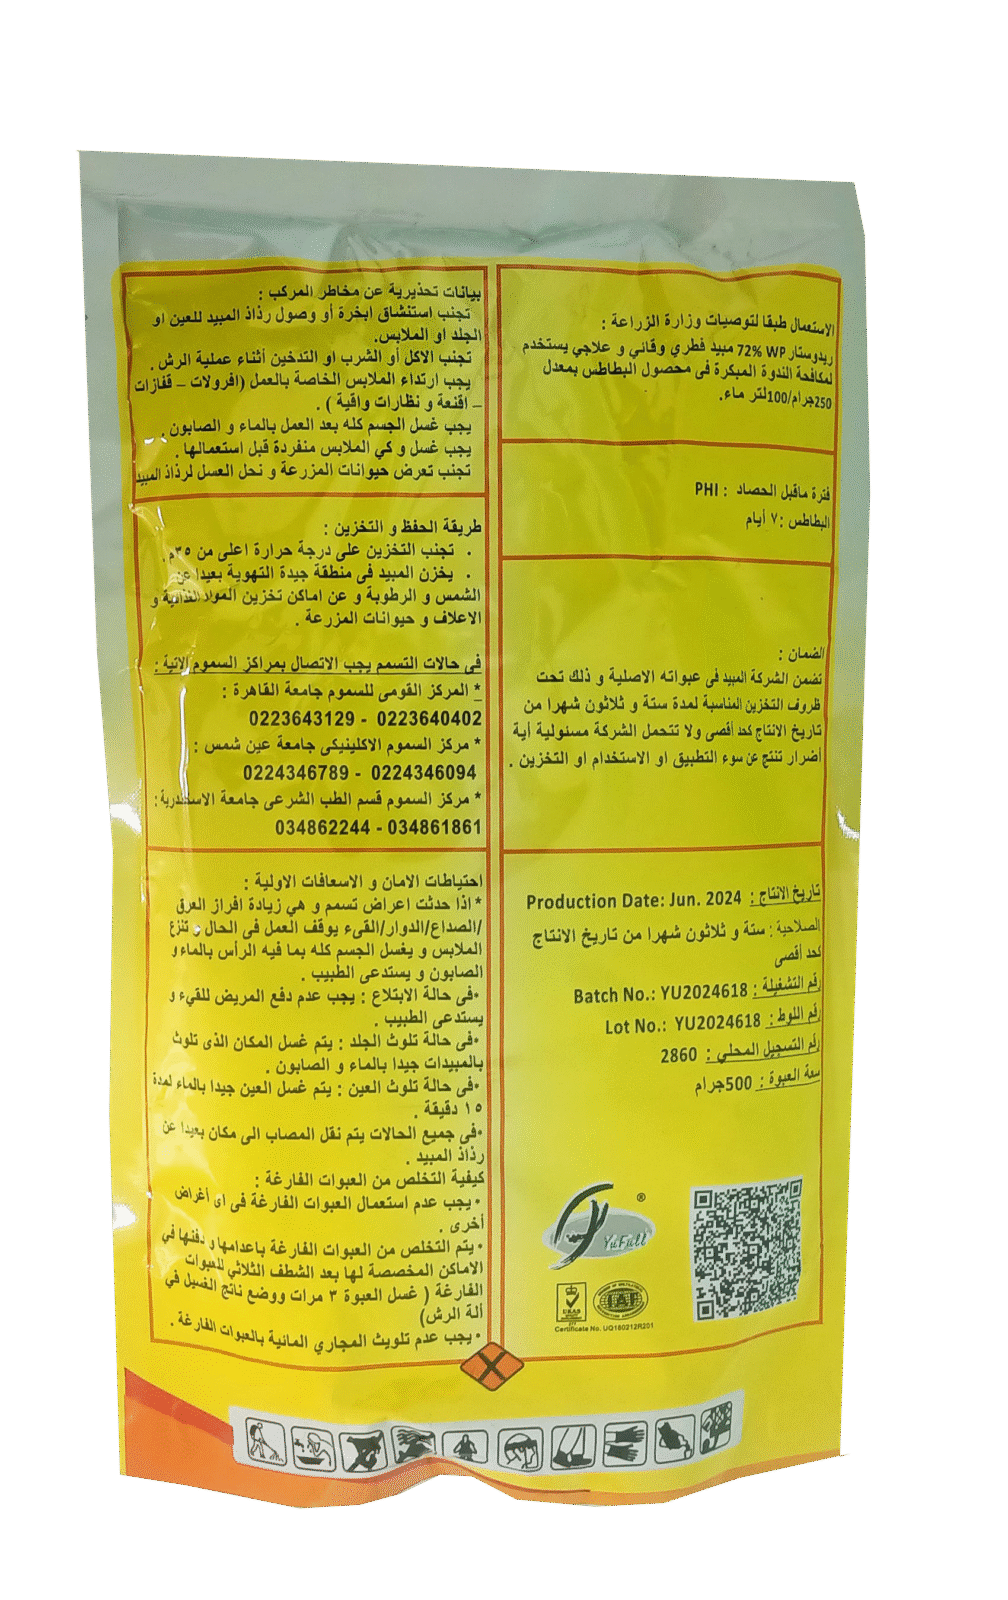 الاستعمال طبقا لتوصيات وزارة الزراعة :
ريدوستار 72% WP مبيد فطري وقائي و علاجي يستخدم
لمكافحة الندوة المبكرة فى محصول البطاطس بمعدل
250جرام/100لتر ماء.
فترة ماقبل الحصاد : PHI
البطاطس :٧ أيام
الضمان :
تضمن الشركة المبيد فى عبواته الاصلية و ذلك تحت
ظروف التخزين المناسبة لمدة ستة و ثلاثون شهرا من
تاريخ الانتاج كحد أقصى ولا تتحمل الشركة مسئولية أية
أضرار تنتج عن سوء التطبيق او الاستخدام او التخزين .
تاريخ الانتاج : Production Date: Jun. 2024
الصلاحية : ستة و ثلاثون شهرا من تاريخ الانتاج
كحد أقصى
رقم التشغيلة : Batch No.: YU2024618
رقم اللوط : Lot No.: YU2024618
رقم التسجيل المحلي : 2860
سعة العبوة : 500جرام
YuFull ®
UKAS
IAF
Certificate No. UQ180212R201
بيانات تحذيرية عن مخاطر المركب :
تجنب استنشاق ابخرة أو وصول رذاذ المبيد للعين او
الجلد او الملابس.
تجنب الاكل أو الشرب او التدخين أثناء عملية الرش .
يجب ارتداء الملابس الخاصة بالعمل (افرولات – قفازات
– اقنعة و نظارات واقية ) .
يجب غسل الجسم كله بعد العمل بالماء و الصابون .
يجب غسل و كي الملابس منفردة قبل استعمالها .
تجنب تعرض حيوانات المزرعة و نحل العسل لرذاذ المبيد
طريقة الحفظ و التخزين :
. تجنب التخزين على درجة حرارة اعلى من ٣٥م.
. يخزن المبيد فى منطقة جيدة التهوية بعيدا عن
الشمس و الرطوبة و عن اماكن تخزين المواد الغذائية و
الاعلاف و حيوانات المزرعة .
فى حالات التسمم يجب الاتصال بمراكز السموم الاتية :
* المركز القومى للسموم جامعة القاهرة :
0223643129 - 0223640402
* مركز السموم الاكلينيكى جامعة عين شمس :
0224346789 - 0224346094
* مركز السموم قسم الطب الشرعى جامعة الاسكندرية :
034862244 - 034861861
احتياطات الامان و الاسعافات الاولية :
* اذا حدثت اعراض تسمم و هي زيادة افراز العرق
/الصداع/الدوار/القىء يوقف العمل فى الحال و تنزع
الملابس و يغسل الجسم كله بما فيه الرأس بالماء و
الصابون و يستدعى الطبيب .
•فى حالة الابتلاع : يجب عدم دفع المريض للقيء و
يستدعى الطبيب .
•فى حالة تلوث الجلد : يتم غسل المكان الذى تلوث
بالمبيدات جيدا بالماء و الصابون .
•فى حالة تلوث العين : يتم غسل العين جيدا بالماء لمدة
١٥ دقيقة .
•فى جميع الحالات يتم نقل المصاب الى مكان بعيدا عن
رذاذ المبيد .
كيفية التخلص من العبوات الفارغة :
• يجب عدم استعمال العبوات الفارغة فى اى أغراض
أخرى .
• يتم التخلص من العبوات الفارغة باعدامها و دفنها في
الاماكن المخصصة لها بعد الشطف الثلاثي للعبوات
الفارغة ( غسل العبوة ٣ مرات ووضع ناتج الغسيل في
ألة الرش)
•يجب عدم تلويث المجاري المائية بالعبوات الفارغة .
X